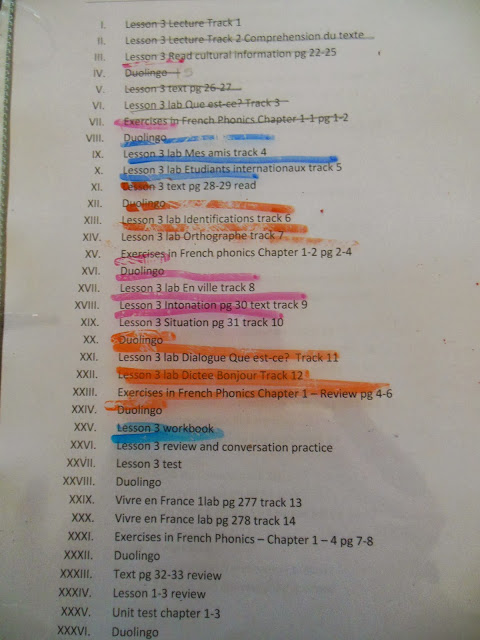 I. Lesson 3 Lecture Track 1
II. Lesson 3 Lecture Track 2 Comprehension du texte
III. Lesson 3 Read cultural information pg 22-25
IV. Duolingo
V. Lesson 3 text pg 26-27
VI. Lesson 3 lab Que est-ce? Track 3
VII. Exercises in French Phonics Chapter 1-1 pg 1-2
VIII. Duolingo
IX. Lesson 3 lab Mes amis track 4
X. Lesson 3 lab Etudiants internationaux track 5
XI. Lesson 3 text pg 28-29 read
XII. Duolingo
XIII. Lesson 3 lab Identifications track 6
XIV. Lesson 3 lab Orthographe track 7
XV. Exercises in French phonics Chapter 1-2 pg 2-4
XVI. Duolingo
XVII. Lesson 3 lab En ville track 8
XVIII. Lesson 3 Intonation pg 30 text track 9
XIX. Lesson 3 Situation pg 31 track 10
XX. Duolingo
XXI. Lesson 3 lab Dialogue Que est-ce? Track 11
XXII. Lesson 3 lab Dictee Bonjour Track 12
XXIII. Exercises in French Phonics Chapter 1 – Review pg 4-6
XXIV. Duolingo
XXV. Lesson 3 workbook
XXVI. Lesson 3 review and conversation practice
XXVII. Lesson 3 test
XXVIII. Duolingo
XXIX. Vivre en France 1lab pg 277 track 13
XXX. Vivre en France lab pg 278 track 14
XXXI. Exercises in French Phonics – Chapter 1 – 4 pg 7-8
XXXII. Duolingo
XXXIII. Text pg 32-33 review
XXXIV. Lesson 1-3 review
XXXV. Unit test chapter 1-3
XXXVI. Duolingo